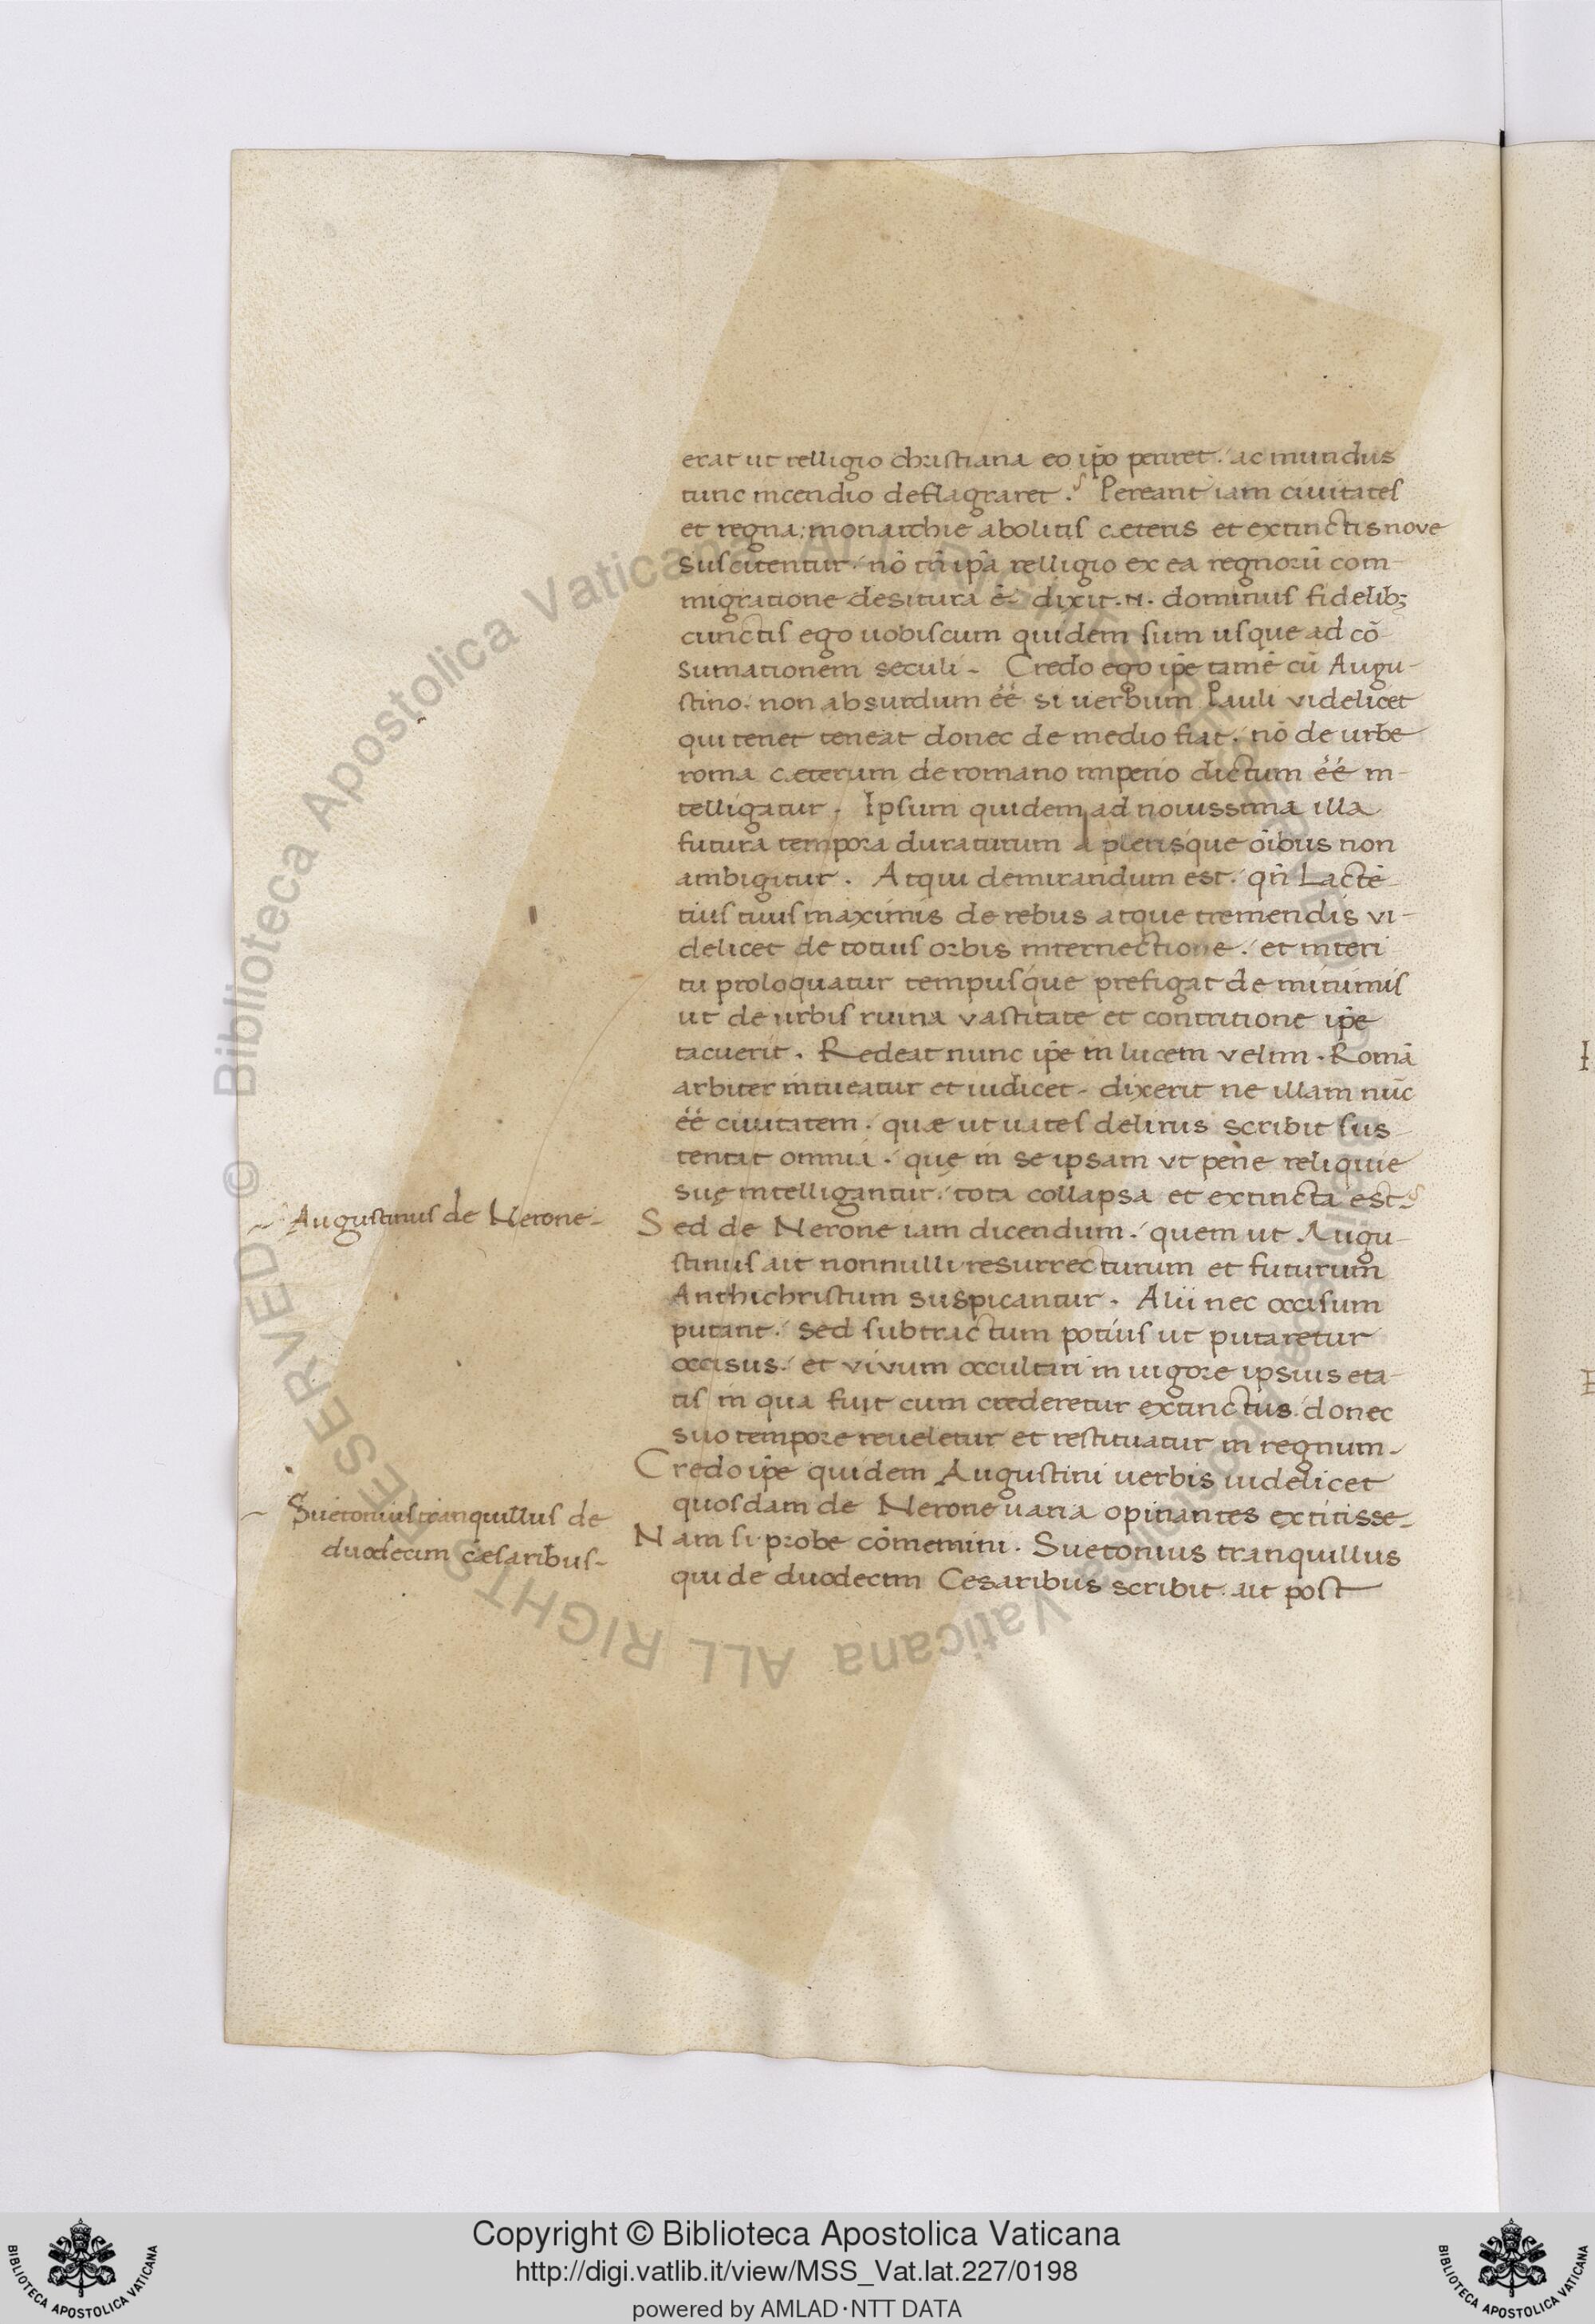 erat ut relligio christiana eo ip̄o periret. ac mundus
tunc incendio deflagraret. Pereant iam ciuitates
et regna: monarchie abolitis cæteris et extinctis nove
suscitentur. nō tn̄ ip̄a relligio ex ea regnorū com-
migratione desitura ē. dixit .N. dominus fidelib;
cunctis ego uobiscum quidem sum usque ad cō
sumationem seculi - Credo ego ip̄e tamē cū Augu-
stino. non absurdum ēē si uerbum Pauli videlicet
qui tenet teneat donec de medio fiat. nō de urbe
roma cæterum de romano imperio dictum ēē in-
telligatur. Ipsum quidem ad nouissima illa
futura tempora duraturum a plerisque oībus non
ambigitur. Atqui demirandum est. qn̄ Lactē
tius tuus maximis de rebus atque tremendis vi-
delicet de totius orbis internectione. et interi
tu proloquatur tempusque prefigat de minimis
ut de urbis ruina vastitate et contritione ip̄e
tacuerit. Redeat nunc ip̄e in lucem velim. Romā
arbiter intueatur et iudicet - dixerit ne illam nūc
ēē ciuitatem. quæ ut uates delirus scribit sus
tentat omnia. que in se ipsam vt pene reliquie
suę intelligantur. tota collapsa et extincta est-
Augustinus de Nerone-
Sed de Nerone iam dicendum. quem ut Augu-
stinus ait nonnulli resurrecturum et futurum
Anthichristum suspicantur. Alii nec occisum
putant. sed subtractum potius ut putaretur
occisus. et vivum occultari in uigore ipsius eta-
tis in qua fuit cum crederetur extinctus. donec
suo tempore reueletur et restituatur in regnum-
Credo ip̄e quidem Augustini uerbis uidelicet
quosdam de Nerone uaria opinantes extitisse-
Suetonius tranquillus de
duodecim cæsaribus-
Nam si probe cōmemini. Suetonius tranquillus
qui de duodecim Cesaribus scribit. ait post
© Biblioteca Apostolica Vaticana ALL RIGHTS RESERVED
Copyright © Biblioteca Apostolica Vaticana
http://digi.vatlib.it/view/MSS_Vat.lat.227/0198
powered by AMLAD·NTT DATA
BIBLIOTECA APOSTOLICA VATICANA
BIBLIOTECA APOSTOLICA VATICANA